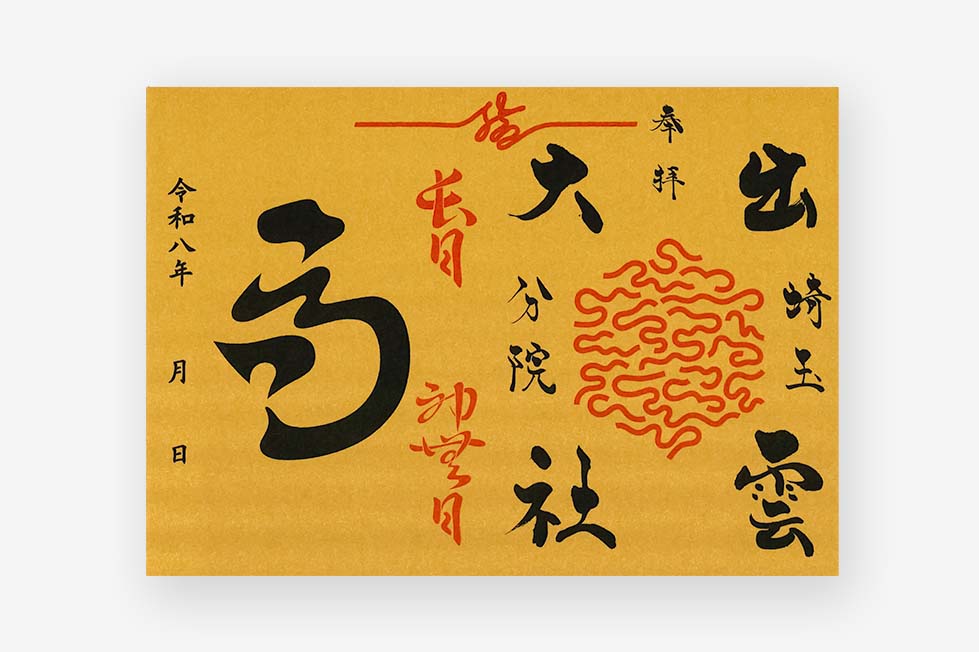 奉拝
出雲
埼玉
大社
分院
長月
神無月
令和八年 月 日